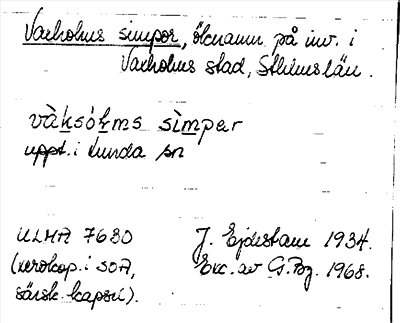 Vaxholms simpor, öknamn på inv. i
Vaxholms stad, Sthlms län.
vàksóḷms sìmper
uppt. i Lunda sn
ULMA 7680 J. Ejdestam 1934.
(xerokop. i SOA, Exc. av G. Bg. 1968.
särsk. kapsel).